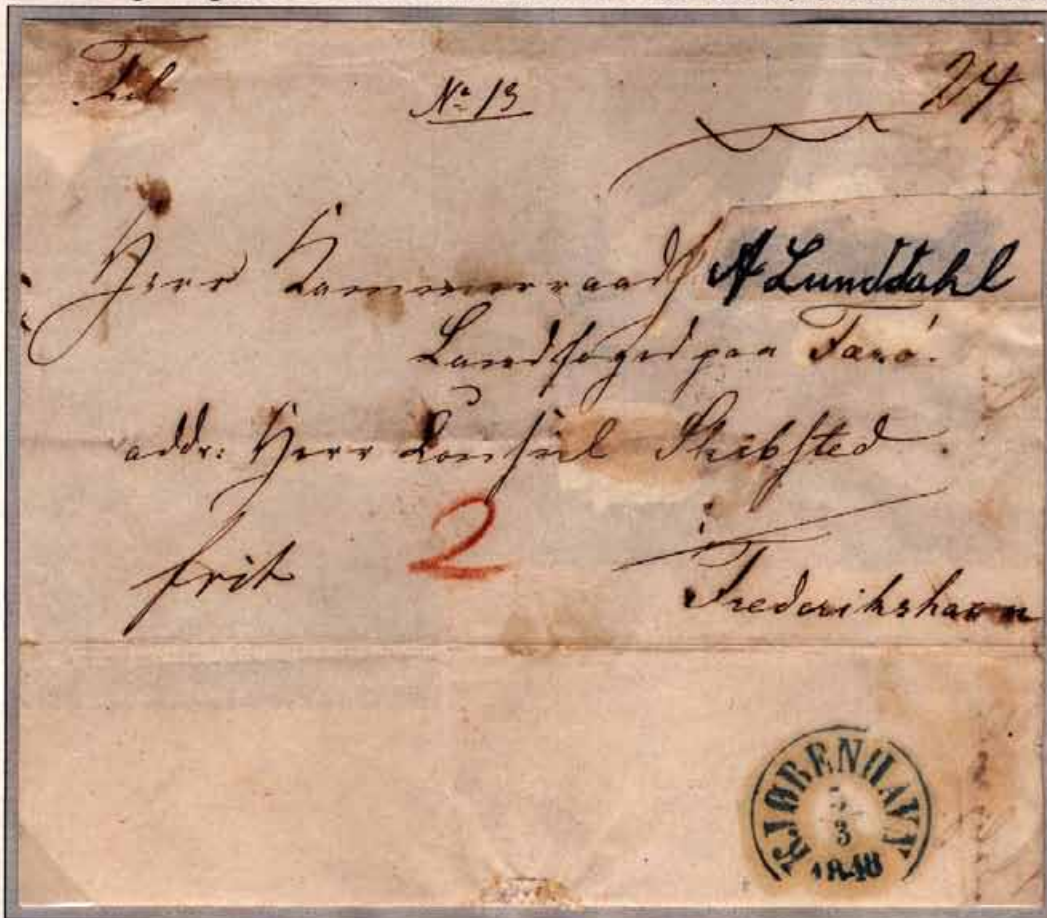 No 13
24
Herr Kammerraad A Lunddahl
Landfoged paa Færö.
addr: Herr Consul Skibsted.
frit 2
i Frederikshavn
KJØBENHAVN
5
3
1848